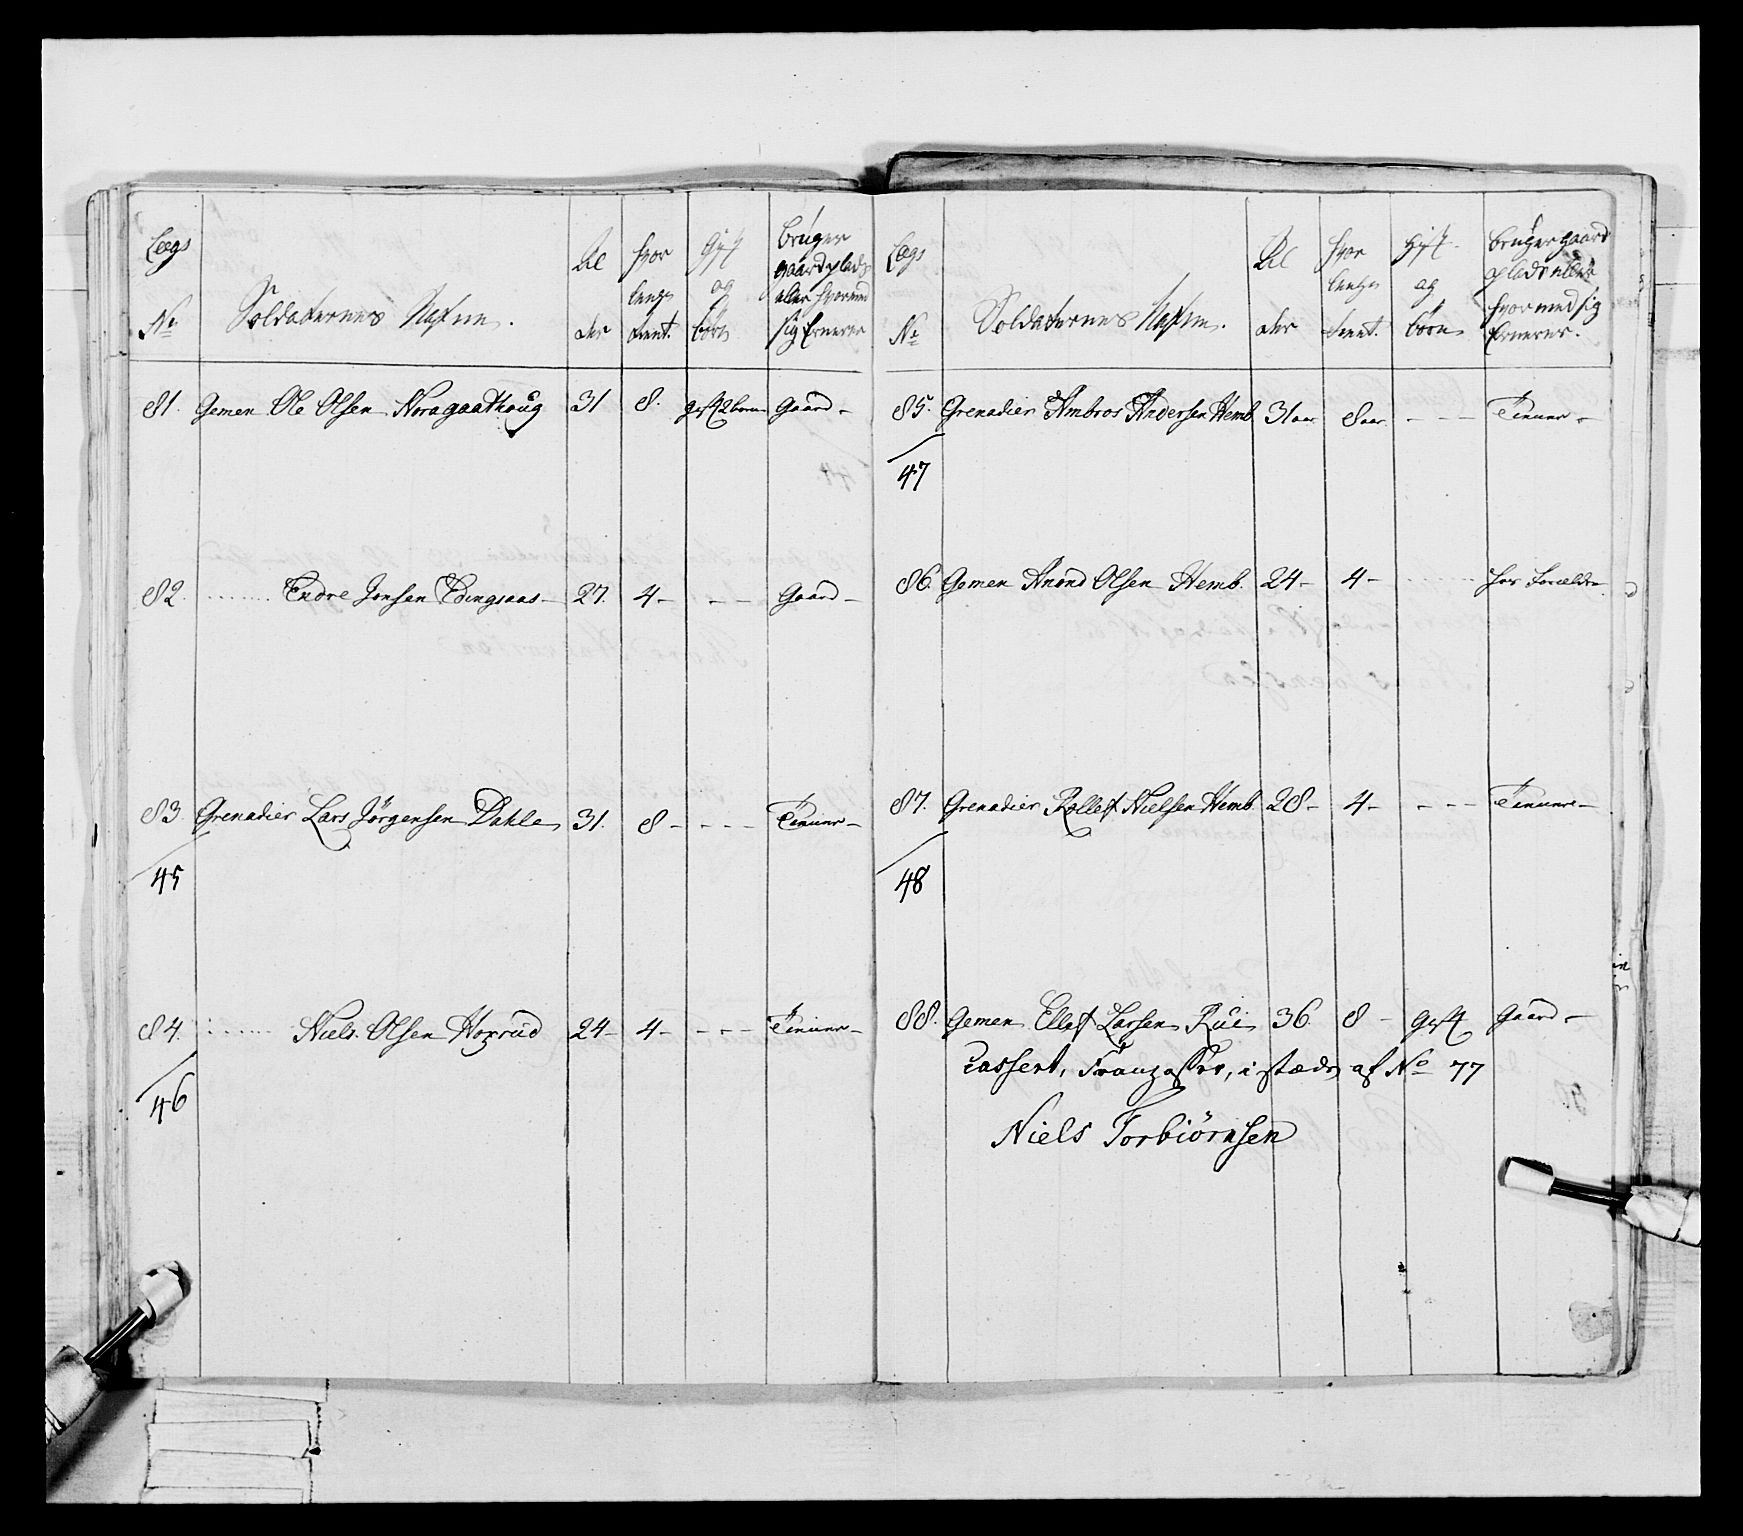 Lægs
No
Soldaternes Nafne.
Al
der
hvor
længe
tient.
Gift
og
børn
bruger
gaard plads
eller hvormed
sig Ernerer
81. Gemen Ole Olsen Noragaathoug 31 8. gift 2 børn Gaard -
82. Endre Jonsen Edingsaas - 27. 4 - - - - Gaard -
83. Grenadier Lars Jörgensen Dahle 31. 8 - - - - Tienner -
45
84. Niels Olsen 24 - 4 - - - - Tienner -
46
Lægs
No
Soldaternes Nafne.
Al
der
hvor
længe
tient.
Gift
og
børn
bruger gaard
plads eller
hvormed sig
Ernerer.
85. Grenadier Ambros Andersen Hemb 31 aar 8 aar - - - Tienner -
47
86. Gemen Anond Olsen Hemb. 24 - 4 - hos Forældre
87. Grenadier Rollef Nielsen Hemb 28 - 4 - - - - Tienner -
48
88. Gemen Ellef Larsen Rúe 36. 8 - gift Gaard -
Cassert, i stæde af No 77
Niels Torbiörnsen